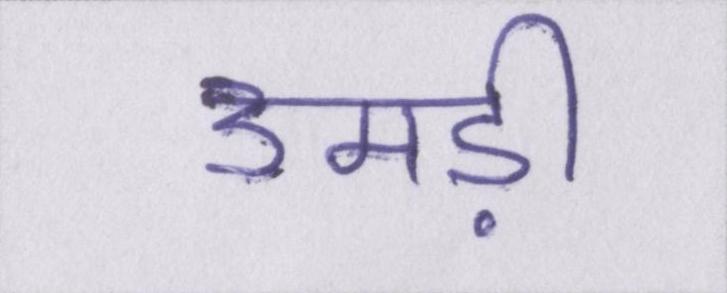 उमड़ी